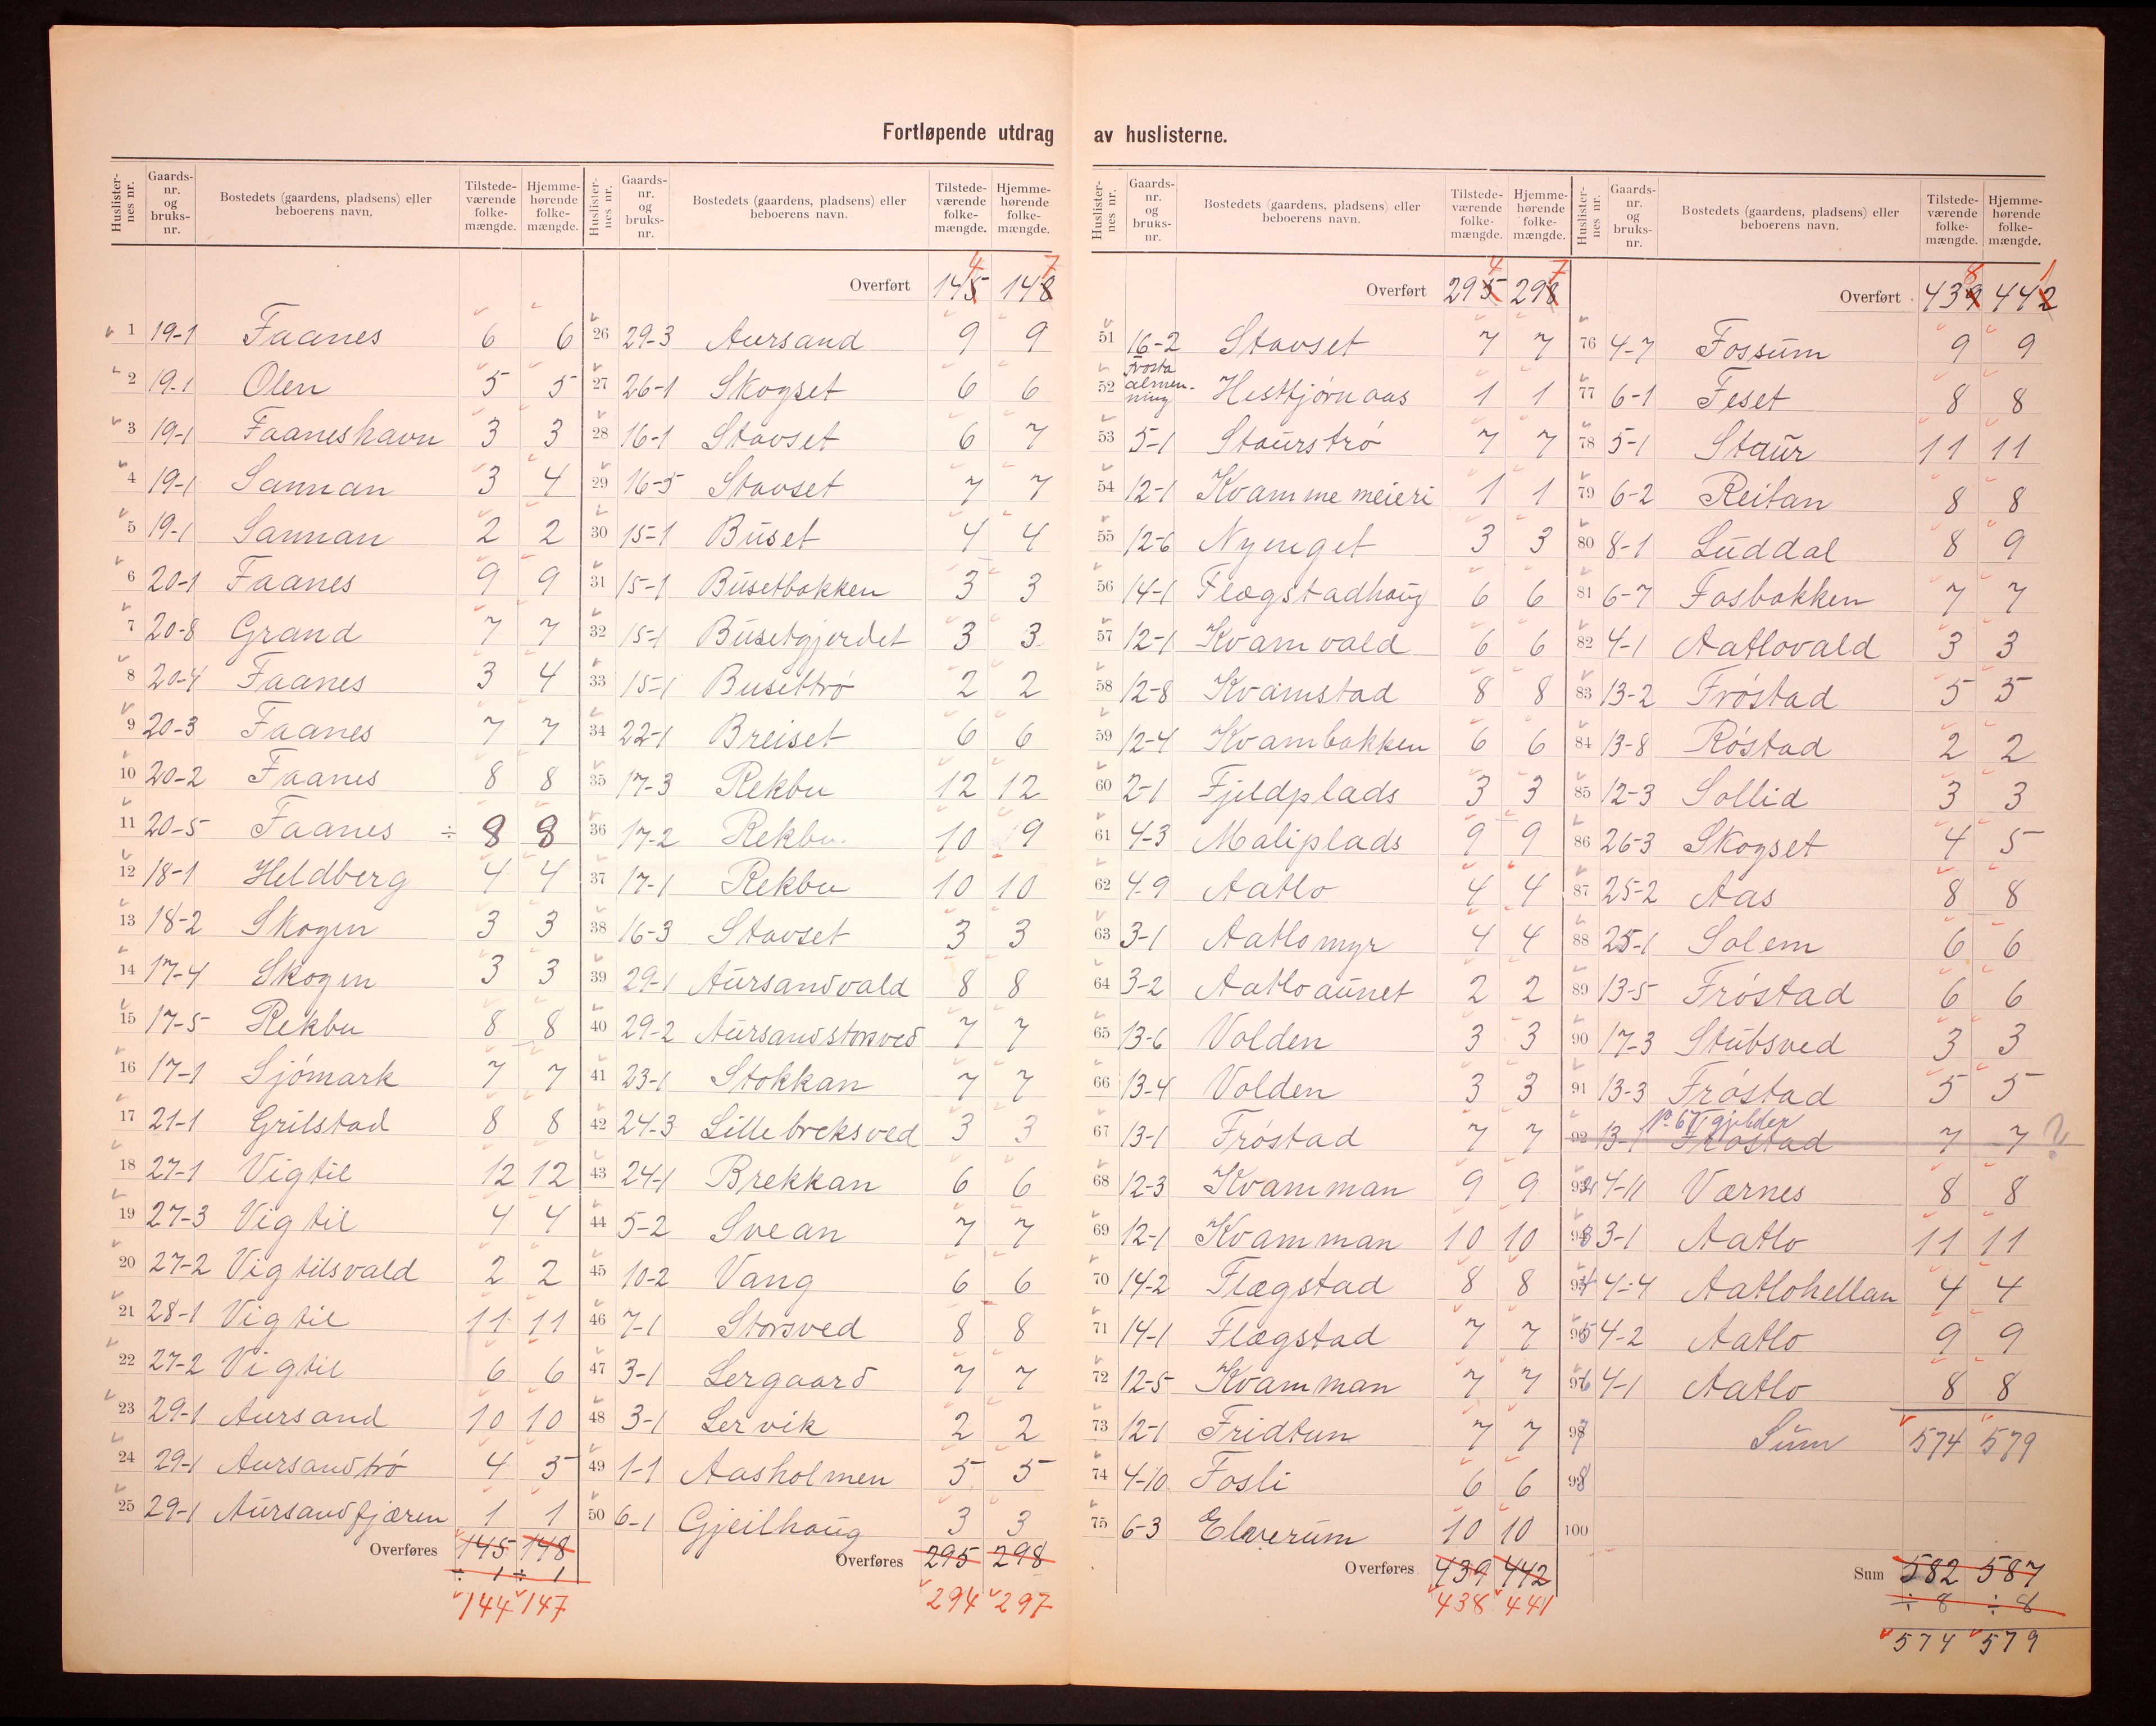 Fortløpende utdrag av huslisterne.
Huslisternes nr. Gaardsnr. og bruksnr. Bostedets (gaardens, pladsens) eller beboerens navn. Tilstedeværende folkemængde. Hjemmehørende folkemængde.
1 19-1 Faanes 6 6
2 19-1 Olen 5 5
3 19-1 Faaneshavn 3 3
4 19-1 Sannan 3 4
5 19-1 Sannan 2 2
6 20-1 Faanes 9 9
7 20-8 Grand 7 7
8 20-4 Faanes 3 4
9 20-3 Faanes 7 7
10 20-2 Faanes 8 8
11 20-5 Faanes ÷ 8 8
12 18-1 Heldberg 4 4
13 18-2 Skogen 3 3
14 17-4 Skogen 3 3
15 17-5 Rekbu 8 8
16 17-1 Sjómark 7 7
17 21-1 Grilstad 8 8
18 27-1 Vigtil 12 12
19 27-3 Vigtil 4 4
20 27-2 Vigtilsvald 2 2
21 28-1 Vigtil 11 11
22 27-2 Vigtil 6 6
23 29-1 Aursand 10 10
24 29-1 Aursandtró 4 5
25 29-1 Aursandfjæren 1 1
Overføres 145 148
÷ 1 ÷ 1
144 147
Huslisternes nr. Gaardsnr. og bruksnr. Bostedets (gaardens, pladsens) eller beboerens navn. Tilstedeværende folkemængde. Hjemmehørende folkemængde.
4 7
Overført 145 148
26 29-3 Aursand 9 9
27 26-1 Skogset 6 6
28 16-1 Stavset 6 7
29 16-5 Stavset 7 7
30 15-1 Buset 4 4
31 15-1 Busetbakken 3 3
32 15-1 Busetgjerdet 3 3
33 15-1 Busettró 2 2
34 22-1 Breiset 6 6
35 17-3 Rekbu 12 12
36 17-2 Rekbu 10 9
37 17-1 Rekbu 10 10
38 16-3 Stavset 3 3
39 29-1 Aursandvald 8 8
40 29-2 Aursandstorsved 7 7
41 23-1 Stokkan 7 7
42 24-3 Lillebreksved 3 3
43 24-1 Brekkan 6 6
44 5-2 Svean 7 7
45 10-2 Vang 6 6
46 7-1 Storsved 8 8
47 3-1 Lergaard 7 7
48 3-1 Lervik 2 2
49 1-1 Aasholmen 5 5
50 6-1 Gjeilhaug 3 3
Overføres 295 298
294 297
Huslisternes nr. Gaardsnr. og bruksnr. Bostedets (gaardens, pladsens) eller beboerens navn. Tilstedeværende folkemængde. Hjemmehørende folkemængde.
4 7
Overført 295 298
51 16-2 Stavset 7 7
52 Frosta almenning Hesttjørnaas 1 1
53 5-1 Staurstró 7 7
54 12-1 Kvamme meieri 1 1
55 12-6 Nyenget 3 3
56 14-1 Flægstadhaug 6 6
57 12-1 Kvamvald 6 6
58 12-8 Kvamstad 8 8
59 12-4 Kvambakken 6 6
60 2-1 Fjeldplads 3 3
61 4-3 Maliplads 9 9
62 4-9 Aatlo 4 4
63 3-1 Aatlomyr 4 4
64 3-2 Aatloaunet 2 2
65 13-6 Volden 3 3
66 13-4 Volden 3 3
67 13-1 Fróstad 7 7
68 12-3 Kvamman 9 9
69 12-1 Kvamman 10 10
70 14-2 Flægstad 8 8
71 14-1 Flægstad 7 7
72 12-5 Kvamman 7 7
73 12-1 Fridtun 7 7
74 4-10 Fosli 6 6
75 6-3 Elverum 10 10
Overføres 439 442
438 441
Huslisternes nr. Gaardsnr. og bruksnr. Bostedets (gaardens, pladsens) eller beboerens navn. Tilstedeværende folkemængde. Hjemmehørende folkemængde.
8 1
Overført 439 442
76 4-7 Fossum 9 9
77 6-1 Feset 8 8
78 5-1 Staur 11 11
79 6-2 Reitan 8 8
80 8-1 Luddal 8 9
81 6-7 Fosbakken 7 7
82 4-1 Aatlovald 3 3
83 13-2 Fróstad 5 5
84 13-8 Róstad 2 2
85 12-3 Sollid 3 3
86 26-3 Skogset 4 5
87 25-2 Aas 8 8
88 25-1 Solem 6 6
89 13-5 Fróstad 6 6
90 17-3 Stubsved 3 3
91 13-3 Fróstad 5 5
No 67 gjelder
92 13-1 Fróstad 7 7 ?
93 2 4-11 Værnes 8 8
94 3 3-1 Aatlo 11 11
95 4 4-4 Aatlohellan 4 4
96 5 4-2 Aatlo 9 9
97 6 4-1 Aatlo 8 8
98 7 Sum 574 579
99 8
100
Sum 582 587
÷ 8 ÷ 8
574 579